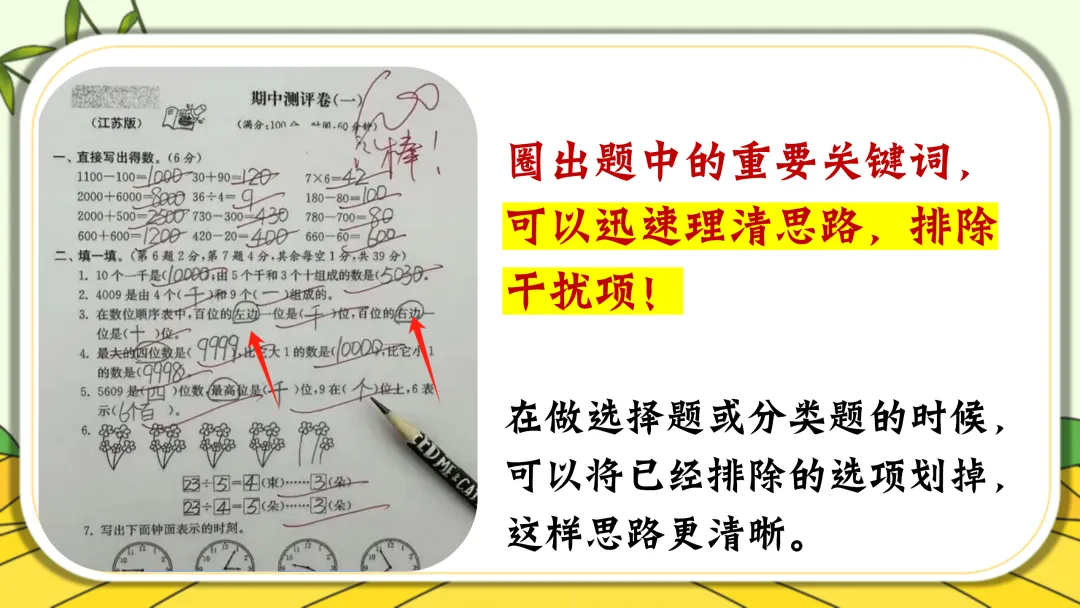 期中测评卷(一)
(江苏版)
(满分:100分 时间:60分钟)
100
棒!
一、直接写出得数。(6分)
1100-100=1000 30+90=120 7×6=42
2000+6000=8000 36÷4=9 180-80=100
2000+500=2500 730-300=430 780-700=80
600+600=1200 420-20=400 660-60=600
二、填一填。(第6题2分,第7题4分,其余每空1分,共39分)
1. 10个一千是(10000);由5个千和3个十组成的数是(5030)。
2. 4009是由4个(千)和9个(一)组成的。
3. 在数位顺序表中,百位的左边一位是(千)位,百位的右边一
位是(十)位。
4. 最大的四位数是(9999),比它大1的数是(10000),比它小1
的数是(9998)。
5. 5609是(四)位数,最高位是(千)位,9在(个)位上,6表
示(6个百)。
6.
23÷5=4(束)……3(朵)
23÷4=5(朵)……3(朵)
7. 写出下面钟面表示的时刻。
圈出题中的重要关键词,
可以迅速理清思路,排除
干扰项!
在做选择题或分类题的时候,
可以将已经排除的选项划掉,
这样思路更清晰。